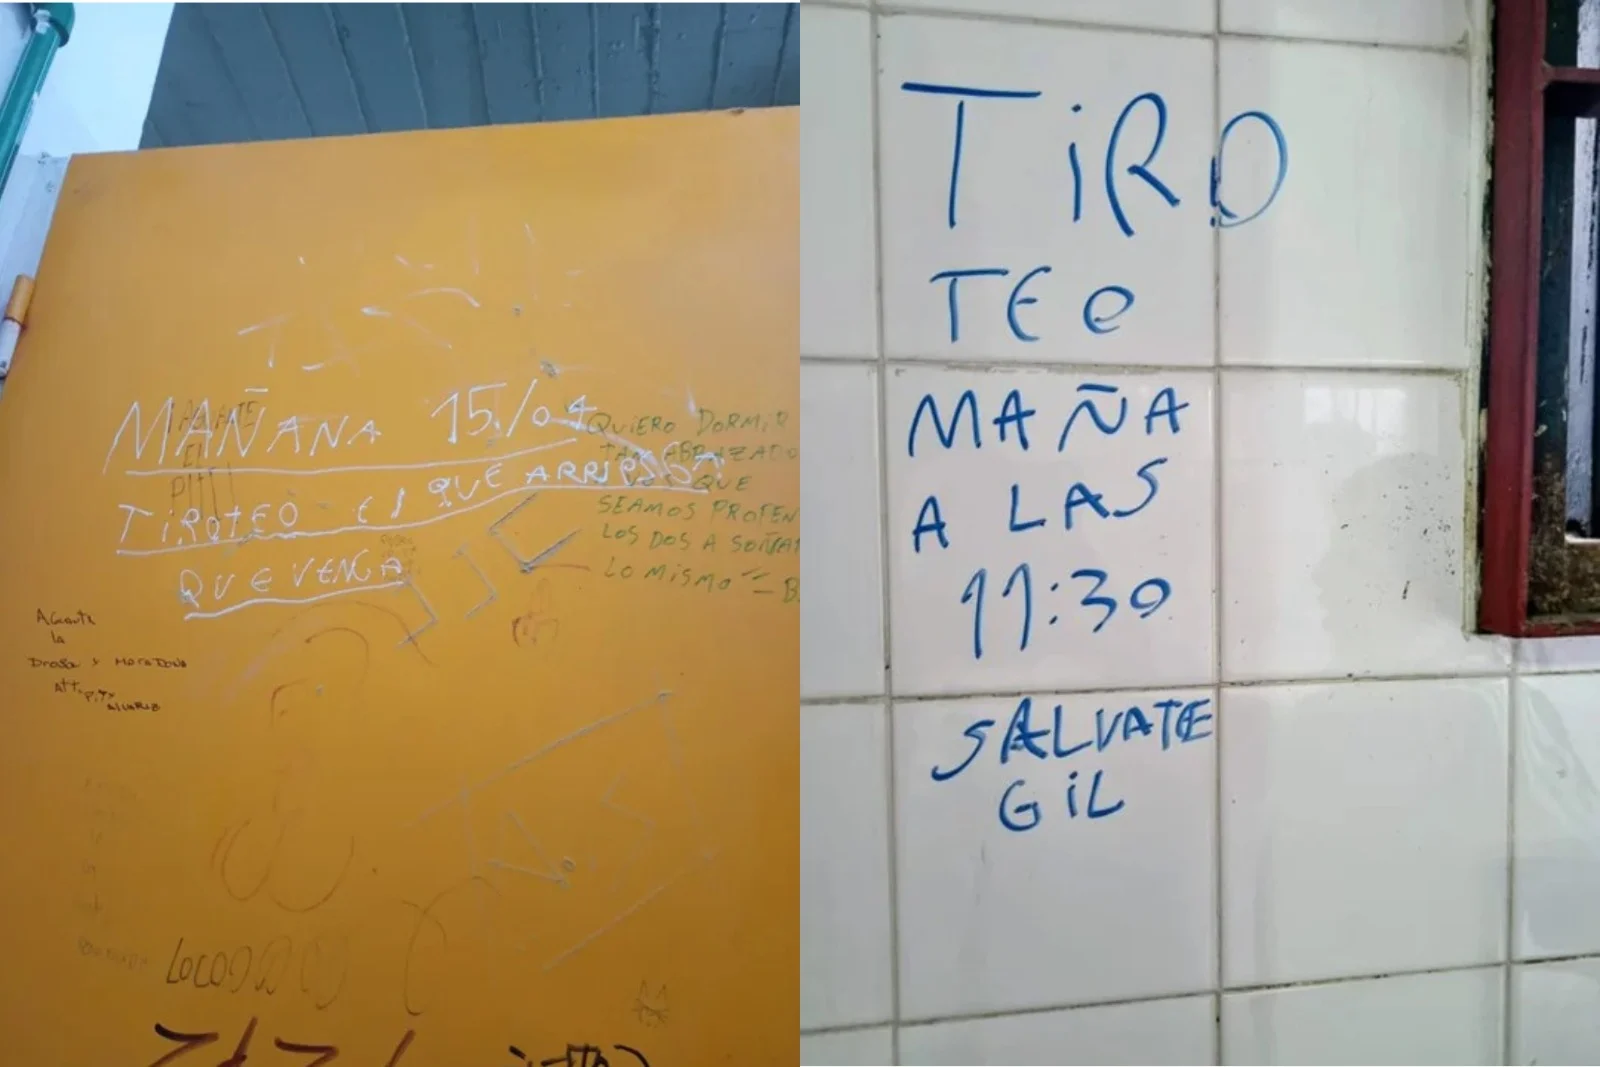 MAÑANA 15/04
TIROTEO EL QUE ARRIESGA
QUE VENGA
AGUANTE
EL
PITY
QUIERO DORMIR
TAN ABRAZADO
QUE
SEAMOS PROFEN
LOS DOS A SOÑAR
LO MISMO – B
Aguante
la
Droga y MARADONA
Att. Pity
ALVAREZ
LOCO
TiRO
TEO
MAÑA
A LAS
11:30
SALVATE
GiL